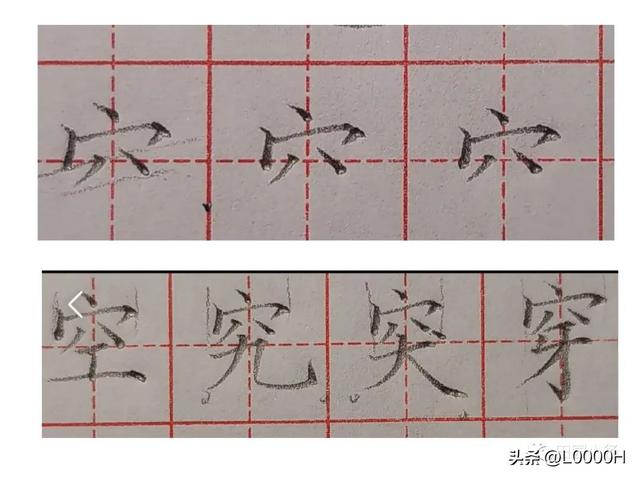 穴 穴 穴
空 究 突 穿
头条 @L0000H